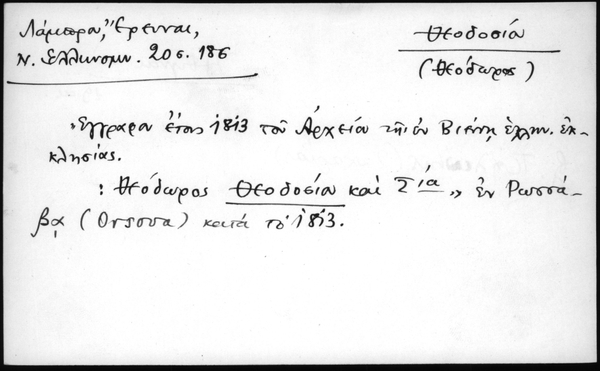 Λάμπρου, Ἔρευναι,
Ν. Ἑλληνομν. 20 σ. 186
Θεοδοσία
(Θεόδωρος)
Ἔγγραφα ἔτους 1813 τοῦ Ἀρχείου τῆς ἐν Βιέννῃ ἑλλην. ἐκ-
κλησίας.
: Θεόδωρος Θεοδοσίου καὶ Σία „ ἐν Ρωσσά-
βᾳ (Orsova) κατὰ τὸ 1813.